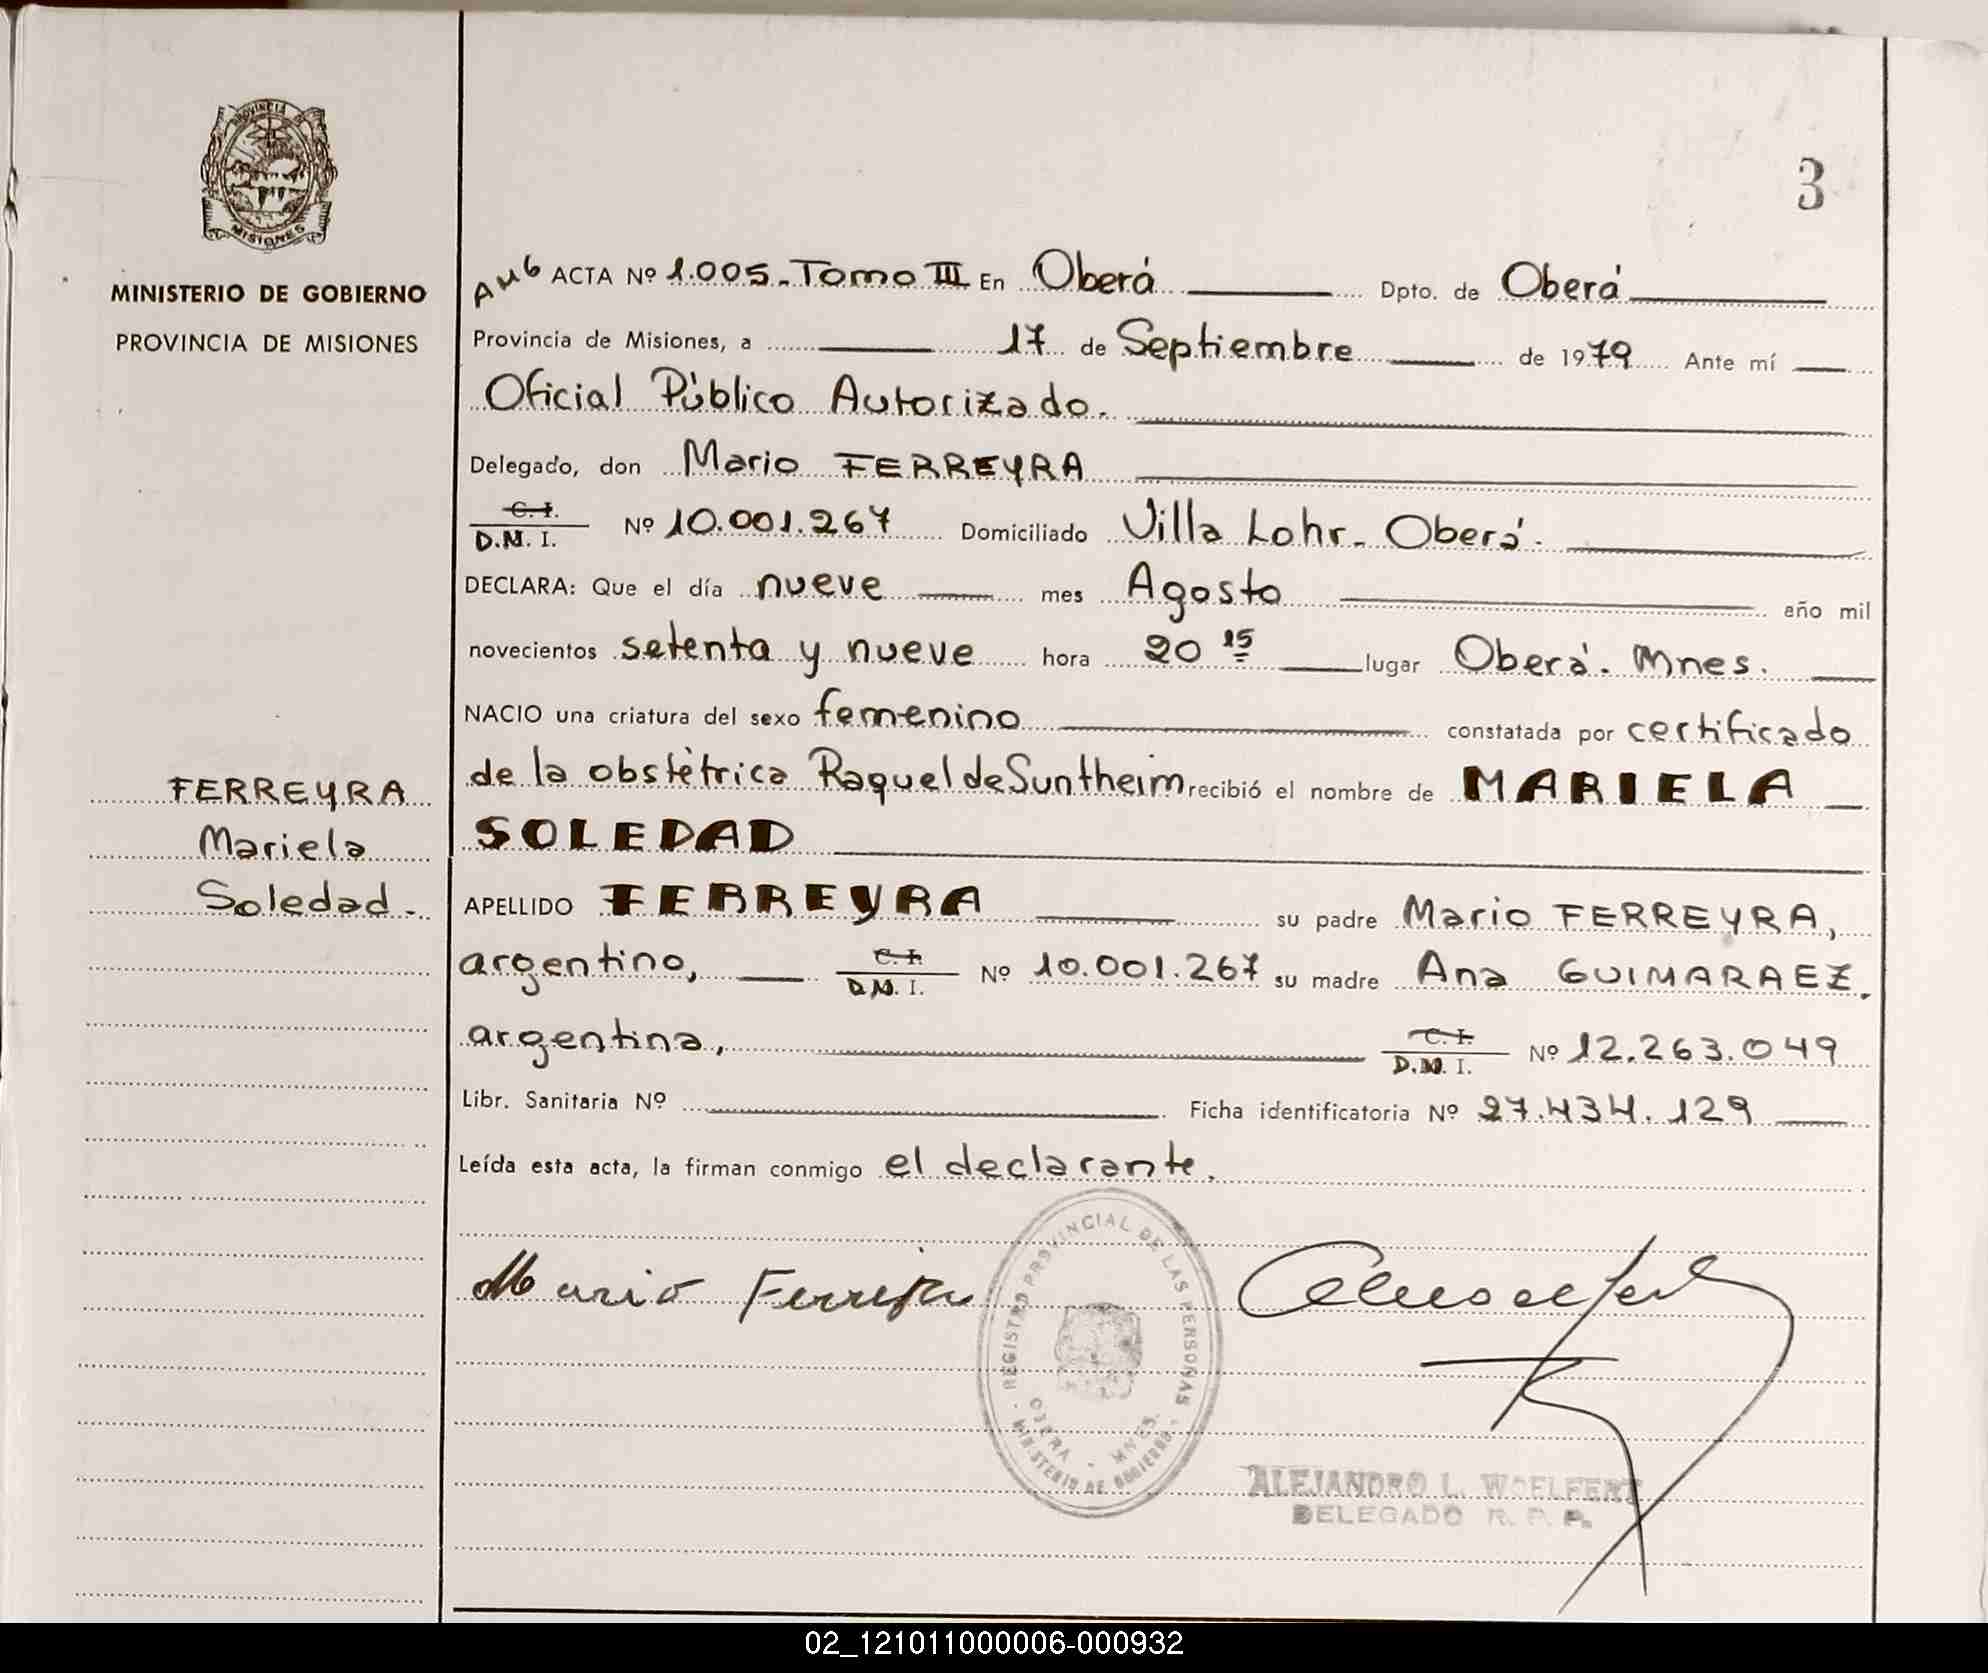 PROVINCIA DE
MISIONES
MINISTERIO DE GOBIERNO
PROVINCIA DE MISIONES
3
AMG ACTA Nº 1.005.-Tomo III En Oberá Dpto. de Oberá
Provincia de Misiones, a 17 de Septiembre de 1979 Ante mí
Oficial Público Autorizado.
Delegado, don Mario FERREYRA
C. I.
D.N. I. Nº 10.001.267 Domiciliado Villa Lohr.- Oberá.
DECLARA: Que el día nueve mes Agosto año mil
novecientos setenta y nueve hora 20 15 lugar Oberá. Mnes.
NACIO una criatura del sexo femenino constatada por certificado
de la obstètrica Raquel de Suntheim recibió el nombre de MARIELA
SOLEDAD
FERREYRA
Mariela
Soledad.-
APELLIDO FERREYRA su padre Mario FERREYRA,
argentino, C. I. D.N. I. Nº 10.001.267 su madre Ana GUIMARAEZ.
argentina, C. I. D.N. I. Nº 12.263.049
Libr. Sanitaria Nº Ficha identificatoria Nº 27.434.129
Leída esta acta, la firman conmigo el declarante.
Mario Ferreyra
REGISTRO PROVINCIAL DE LAS PERSONAS
OBERA - MNES.
- MINISTERIO DE GOBIERNO -
ALEJANDRO L. WOELFERT
DELEGADO R. P. P.
02_121011000006-000932